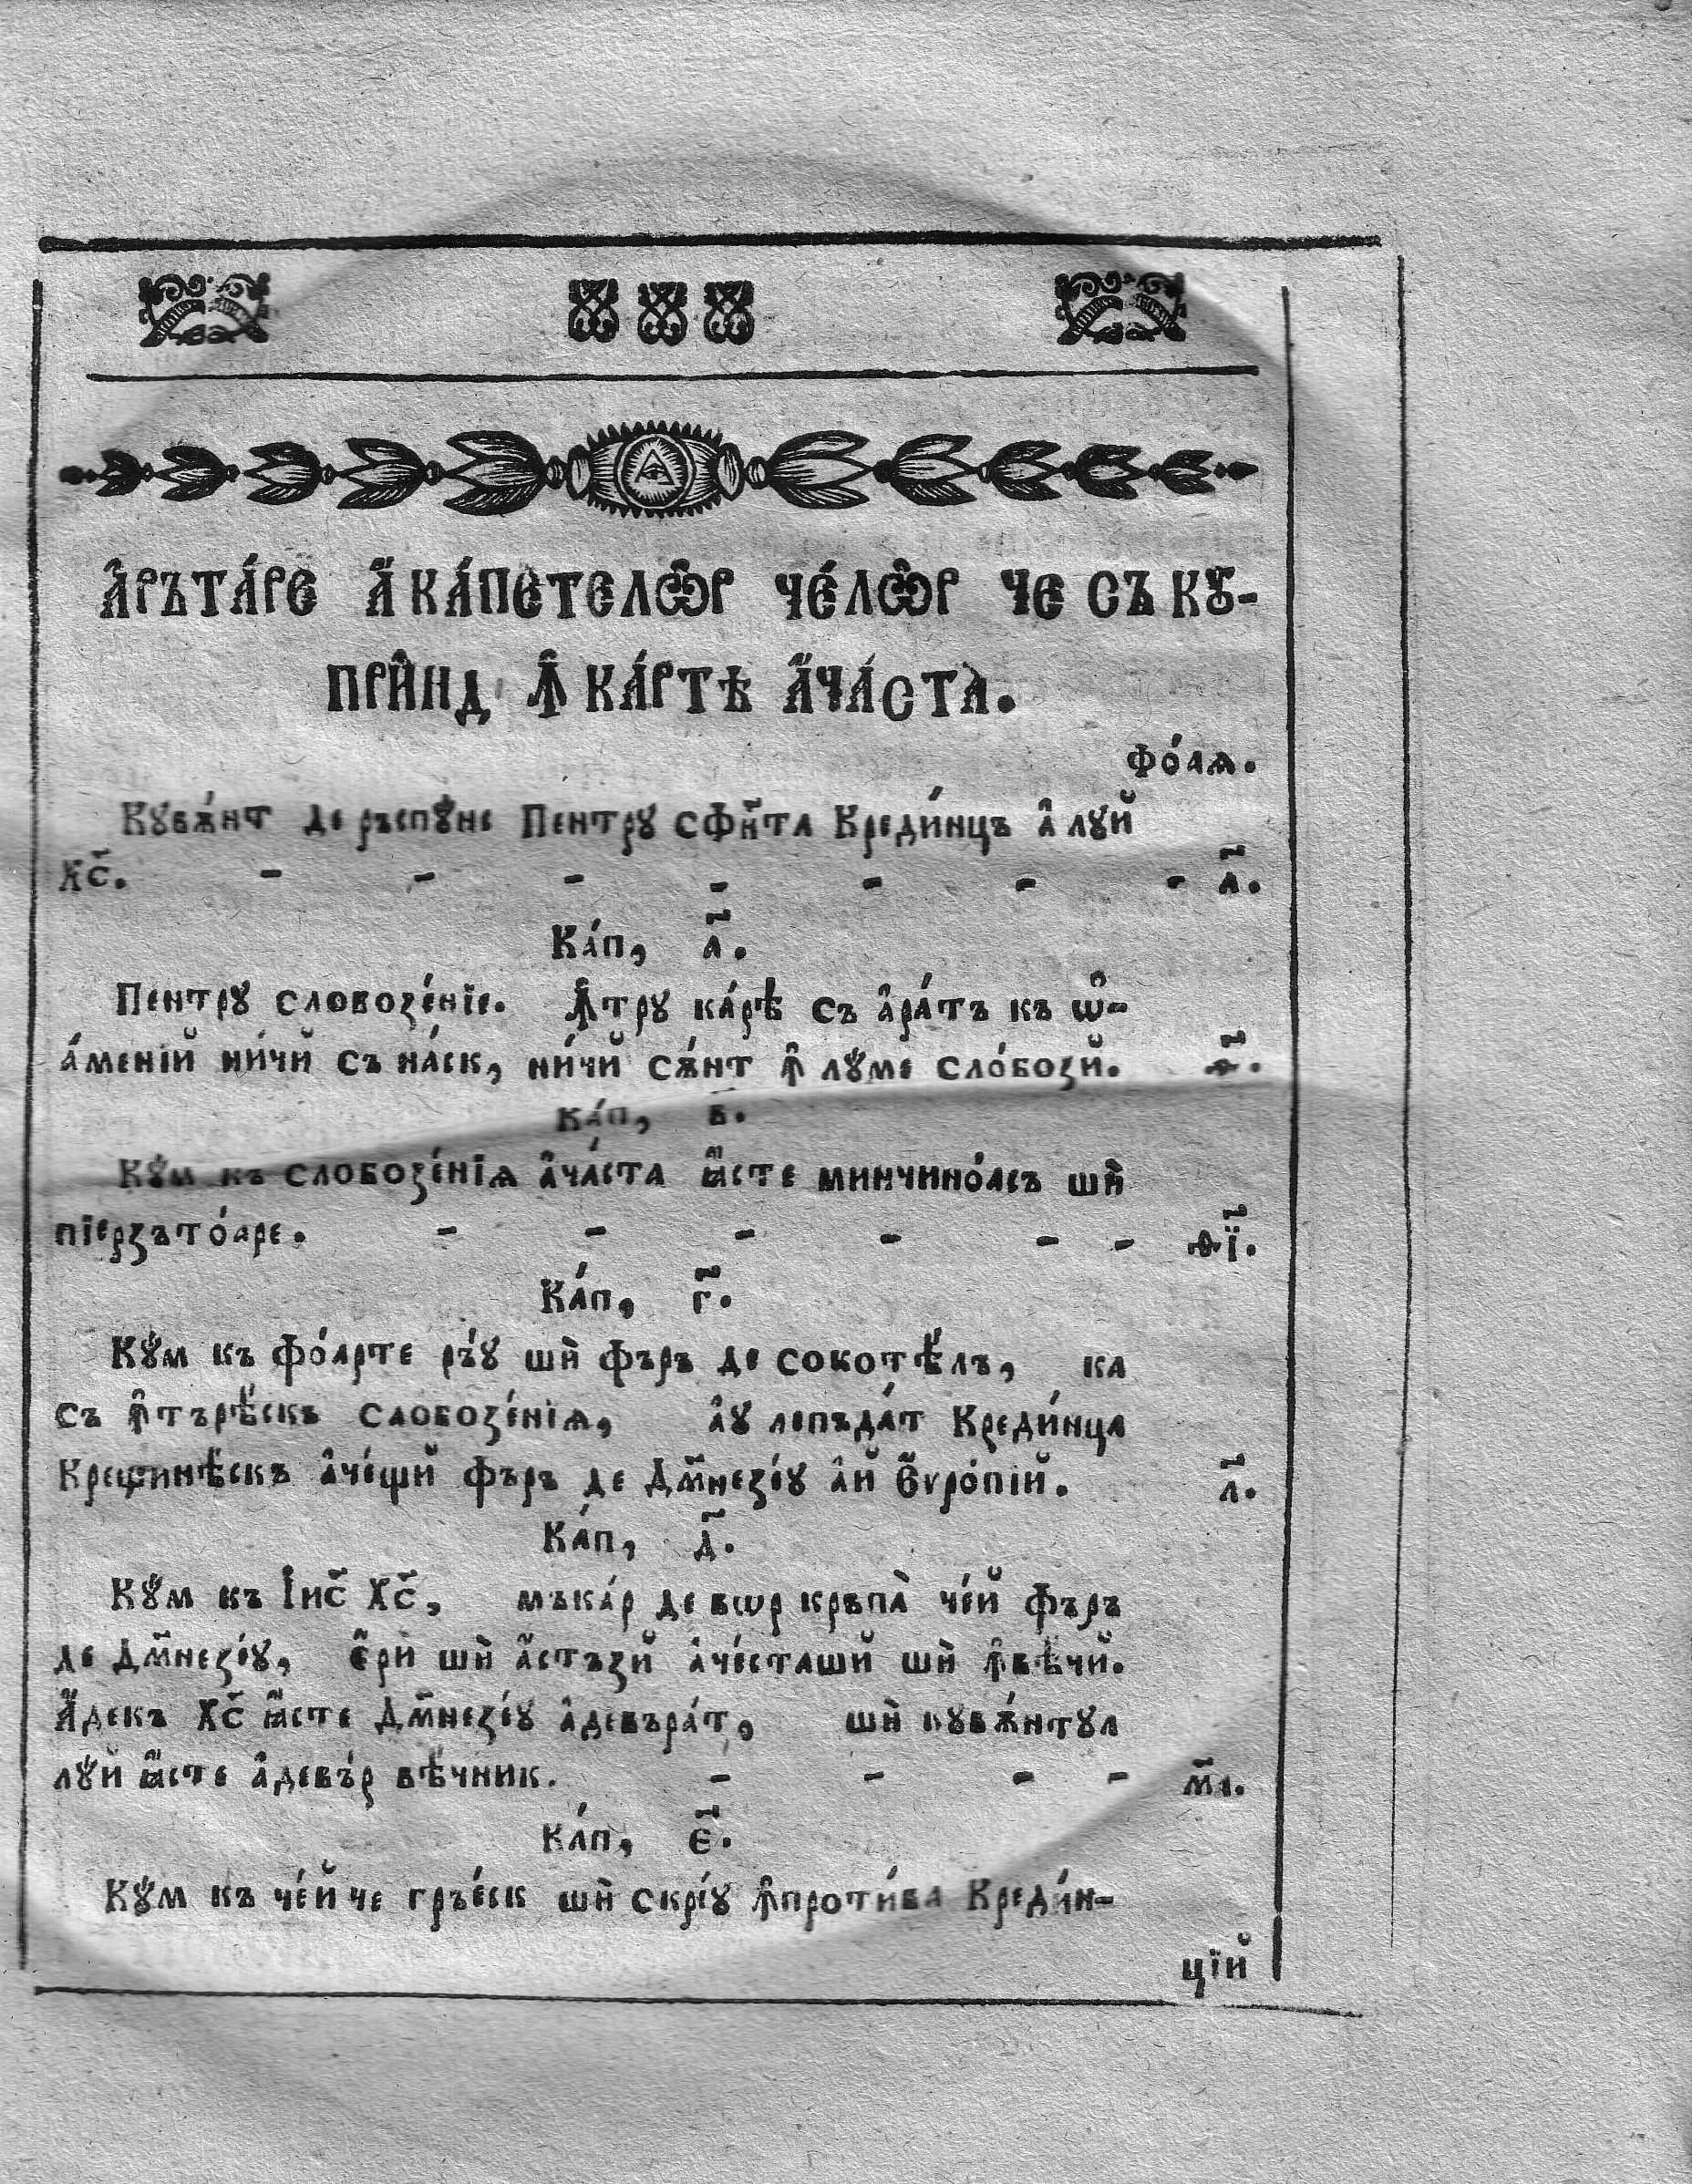 А҆рѫта́ре а҆ ка́петелѡр че́лѡр че съ кꙋ-
при́нд ꙟ҆ ка́ртѣ а҆ча́ста.
Фо́аѧ.
Кꙋвѫ́нт де ръспꙋ́не Пентрꙋ сфн҃та Креди́нцъ а҆ лꙋй
Хс҃. - - - - - - - а҃.
Ка́п, а҃.
Пентрꙋ слобозе́нїе. Ꙟ҆трꙋ ка́рѣ съ а҆ра́тъ къ ѡ҆-
а́менїй ни́чй съ на́ск, ни́чй сѫ́нт ꙟ҆ лꙋ́ме сло́бозй. ѳ҃.
Ка́п, в҃.
Кꙋ́м къ слобозе́нїѧ а҆ча́ста ꙗ҆́сте минчино́асъ шѝ
пїерзъто́аре. - - - - - - ѳ҃ї.
Ка́п, г҃.
Кꙋ́м къ фо́арте ръ́ꙋ шѝ фъръ де сокотѣ́лъ, ка
съ ꙟ҆търѣ́скъ слобозе́нїѧ, а҆ꙋ лепъда́т Креди́нца
Крещинѣ́скъ а҆че́щй фъръ де Дм҃незе́ꙋ а҆й Є҆ѵро́пїй. л҃.
Ка́п, д҃.
Кꙋ́м къ І҆ис҃ Хс҃, мъка́р де вѡр кръпа̀ че́й фъръ
де Дм҃незе́ꙋ, є҆рѝ шѝ а҆́стъзй а҆че́сташй шѝ ꙟ҆ вѣ́чй.
А҆́декъ Хс҃ ꙗ҆́сте Дм҃незе́ꙋ а҆девъра́т, шѝ кꙋвѫ́нтꙋл
лꙋ́й ꙗ҆́сте а҆девъ́р вѣ́чник. - - - - м҃а.
Ка́п, є҃.
Кꙋ́м къ че́й че гръе́ск шѝ скрі́ꙋ ꙟ҆проти́ва Креди́н-
цїй